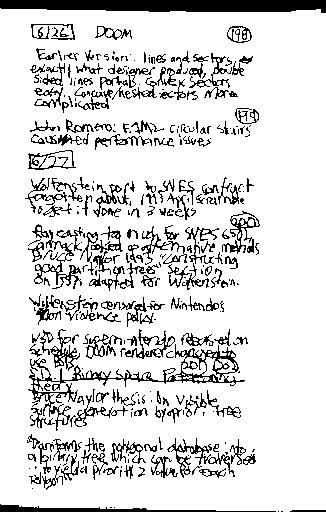 6/26 DOOM 198
Earlier version: lines and sectors,
exactly what designer produced, double
sided lines portals. Convex sectors
easy. Concave/nested sectors more
complicated
199
John Romero: E1M2 circular stairs
caused performance issues
6/27
Wolfenstein port to SNES contract
forgotten about, 1993 April scramble
to get it done in 3 weeks
200
Ray casting too much for SNES
Carmack looked at alternative methods
Bruce Naylor 1993 "Constructing
good partition trees" section
on adapted for Wolfenstein.
Wolfenstein censored for Nintendos
non violence policy.
W3D for super nintendo released on
schedule, DOOM renderer changed to
use BSP
201 202
Binary Space Partitioning
theory
Bruce Naylor thesis: on visible
surface generation by a priori tree
structures
"Transforms the polygonal database into
a binary tree which can be traversed
to yield a priority value for each
polygon"